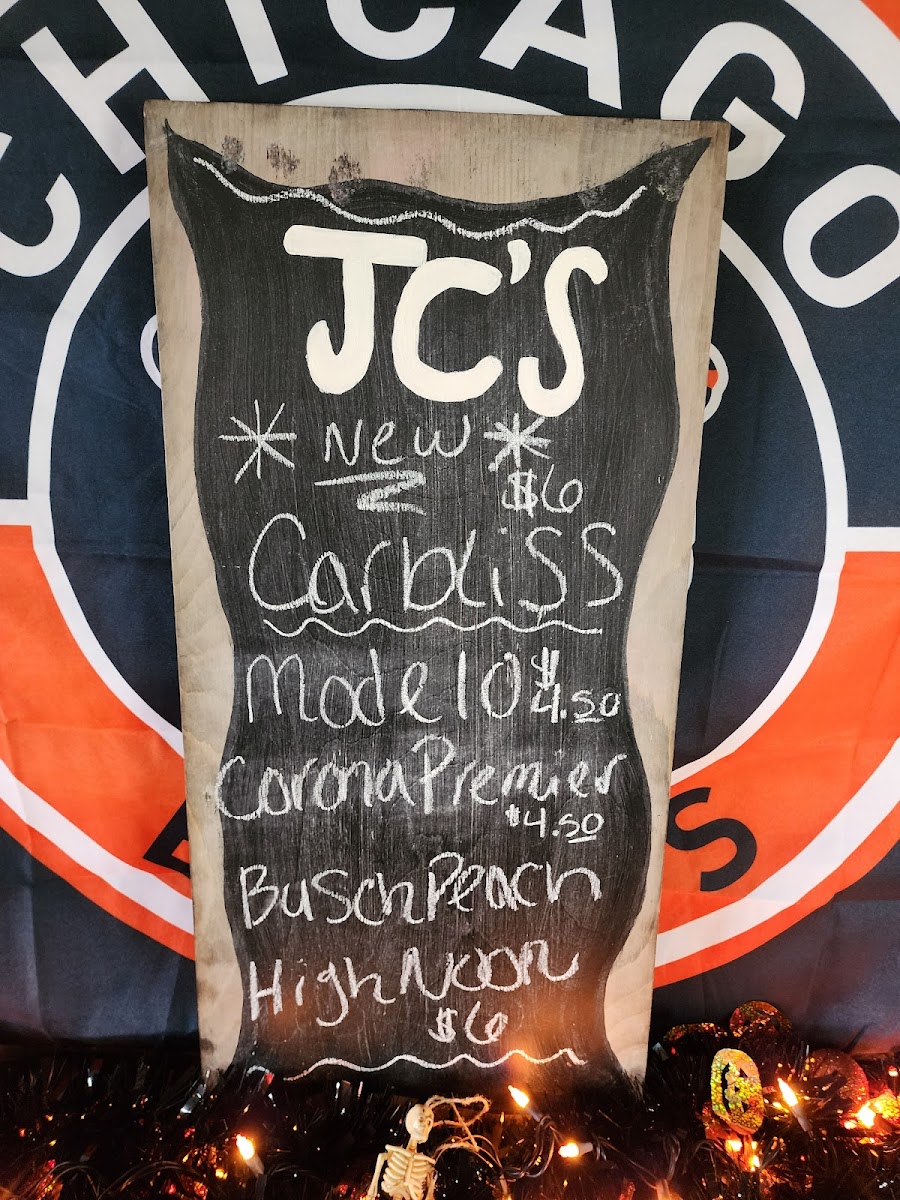 CHICAGO
JC'S
* New *
$6
Carbliss
Modelo $4.50
Corona Premier
$4.50
Busch Peach
High Noon
$6
S